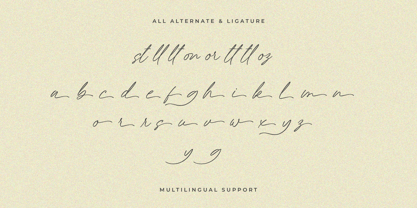 ALL ALTERNATE & LIGATURE
st ll lt on or tt tl oz
a b c d e f g h i k l m n
o r r s u v w x y z
y g
MULTILINGUAL SUPPORT